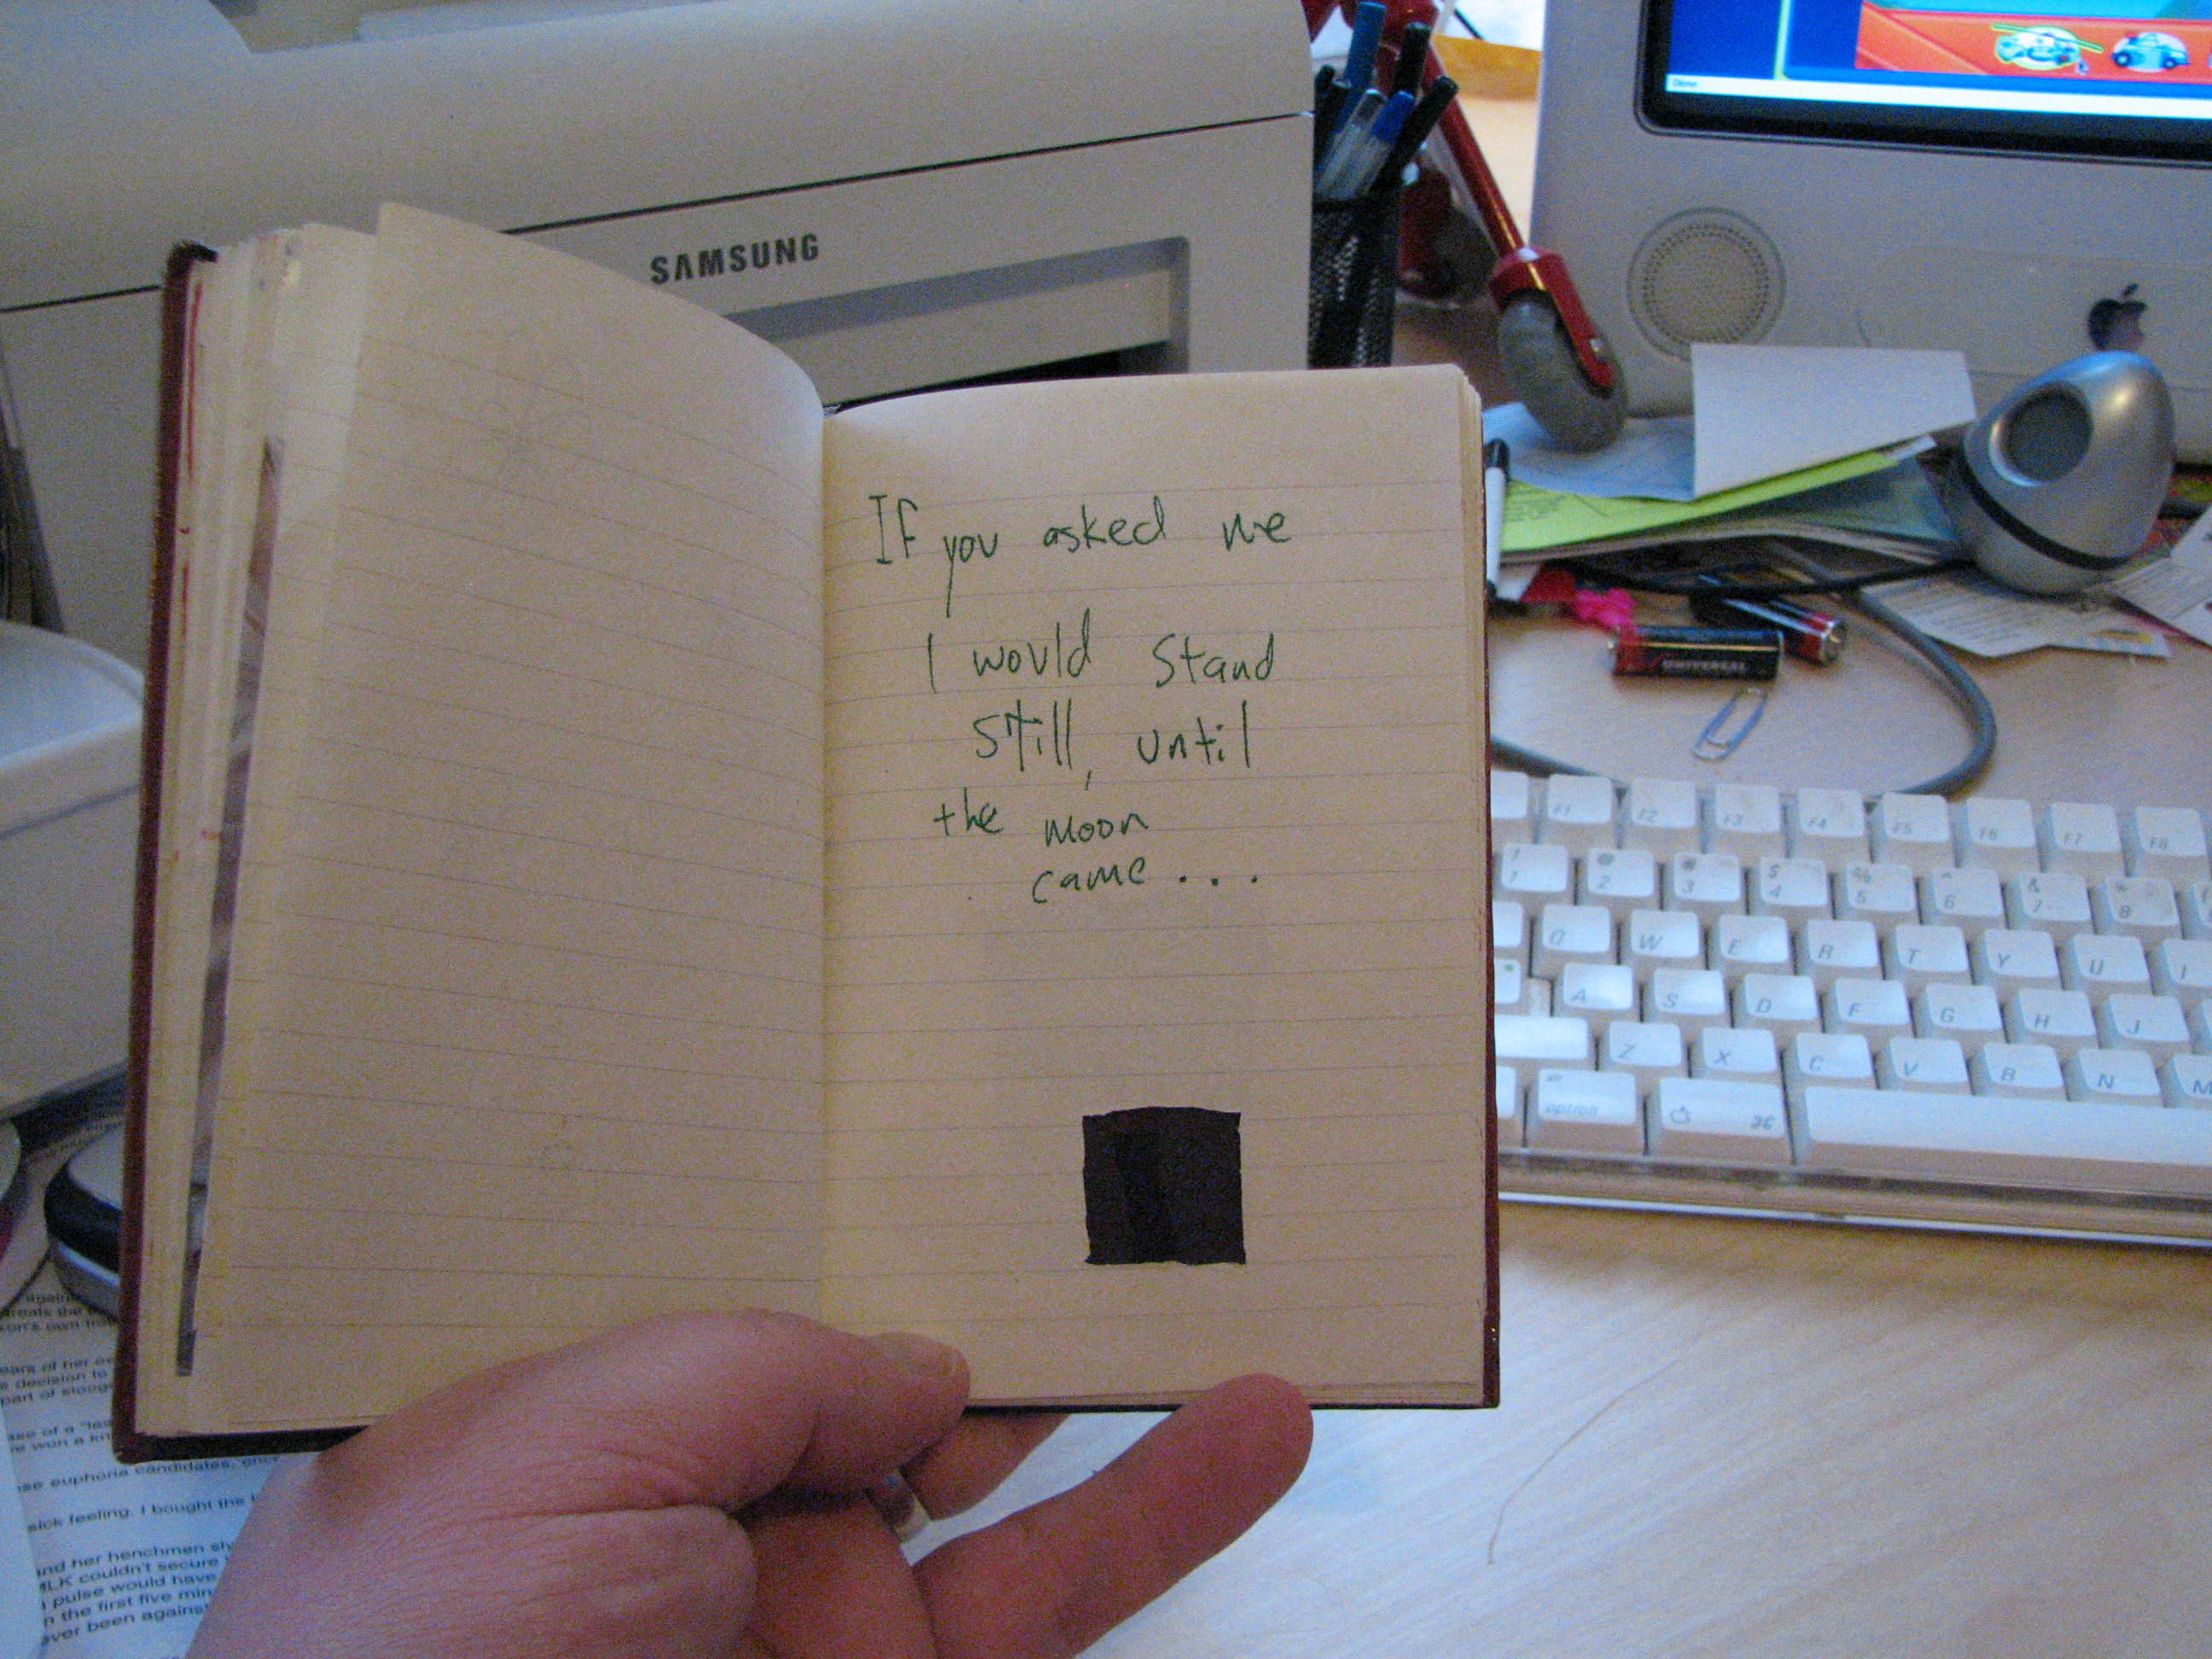 SAMSUNG
Done
If you asked me
I would stand
still, until
the moon
came...
UNIVERSAL
F1 F2 F3 F4 F5 F6 F7 F8
! @ # $ % ^ & *
1 2 3 4 5 6 7 8
Q W E R T Y U I
A S D F G H J
Z X C V B N M
option ⌘
against
parents the
son's own
years of her
decision to
part of
case of a
won a
euphoria candidates,
sick feeling. I bought the
and her henchmen
MLK couldn't secure
pulse would have
the first five
ever been against